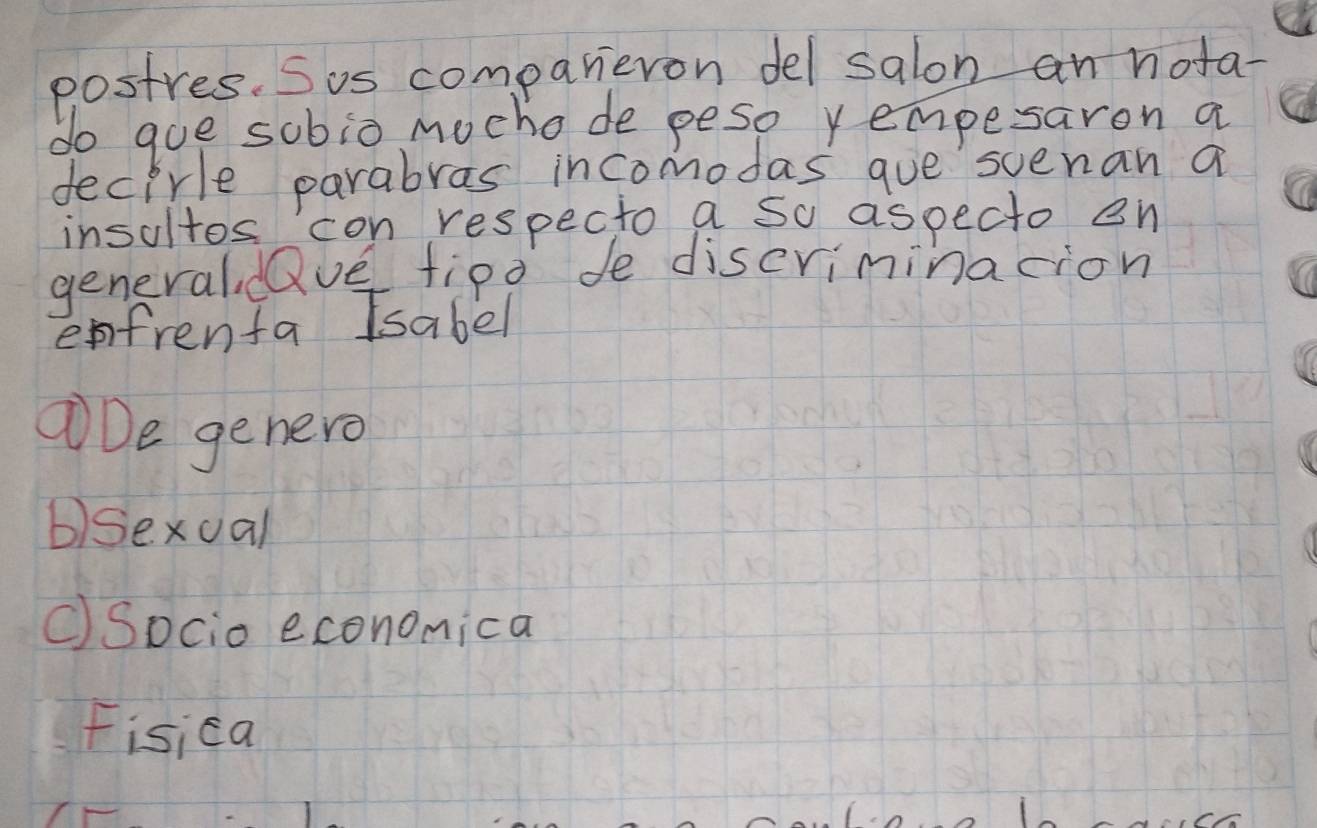 postres. Sus compañeron del salon an nota-
do que subio mucho de peso y empesaron a
decirle parabras incomodas que suenan a
insultos con respecto a su aspecto en
general. ¿Qué tipo de discriminacion
enfrenta Isabel
a) De genero
b) Sexual
c) Socio economica
Fisica